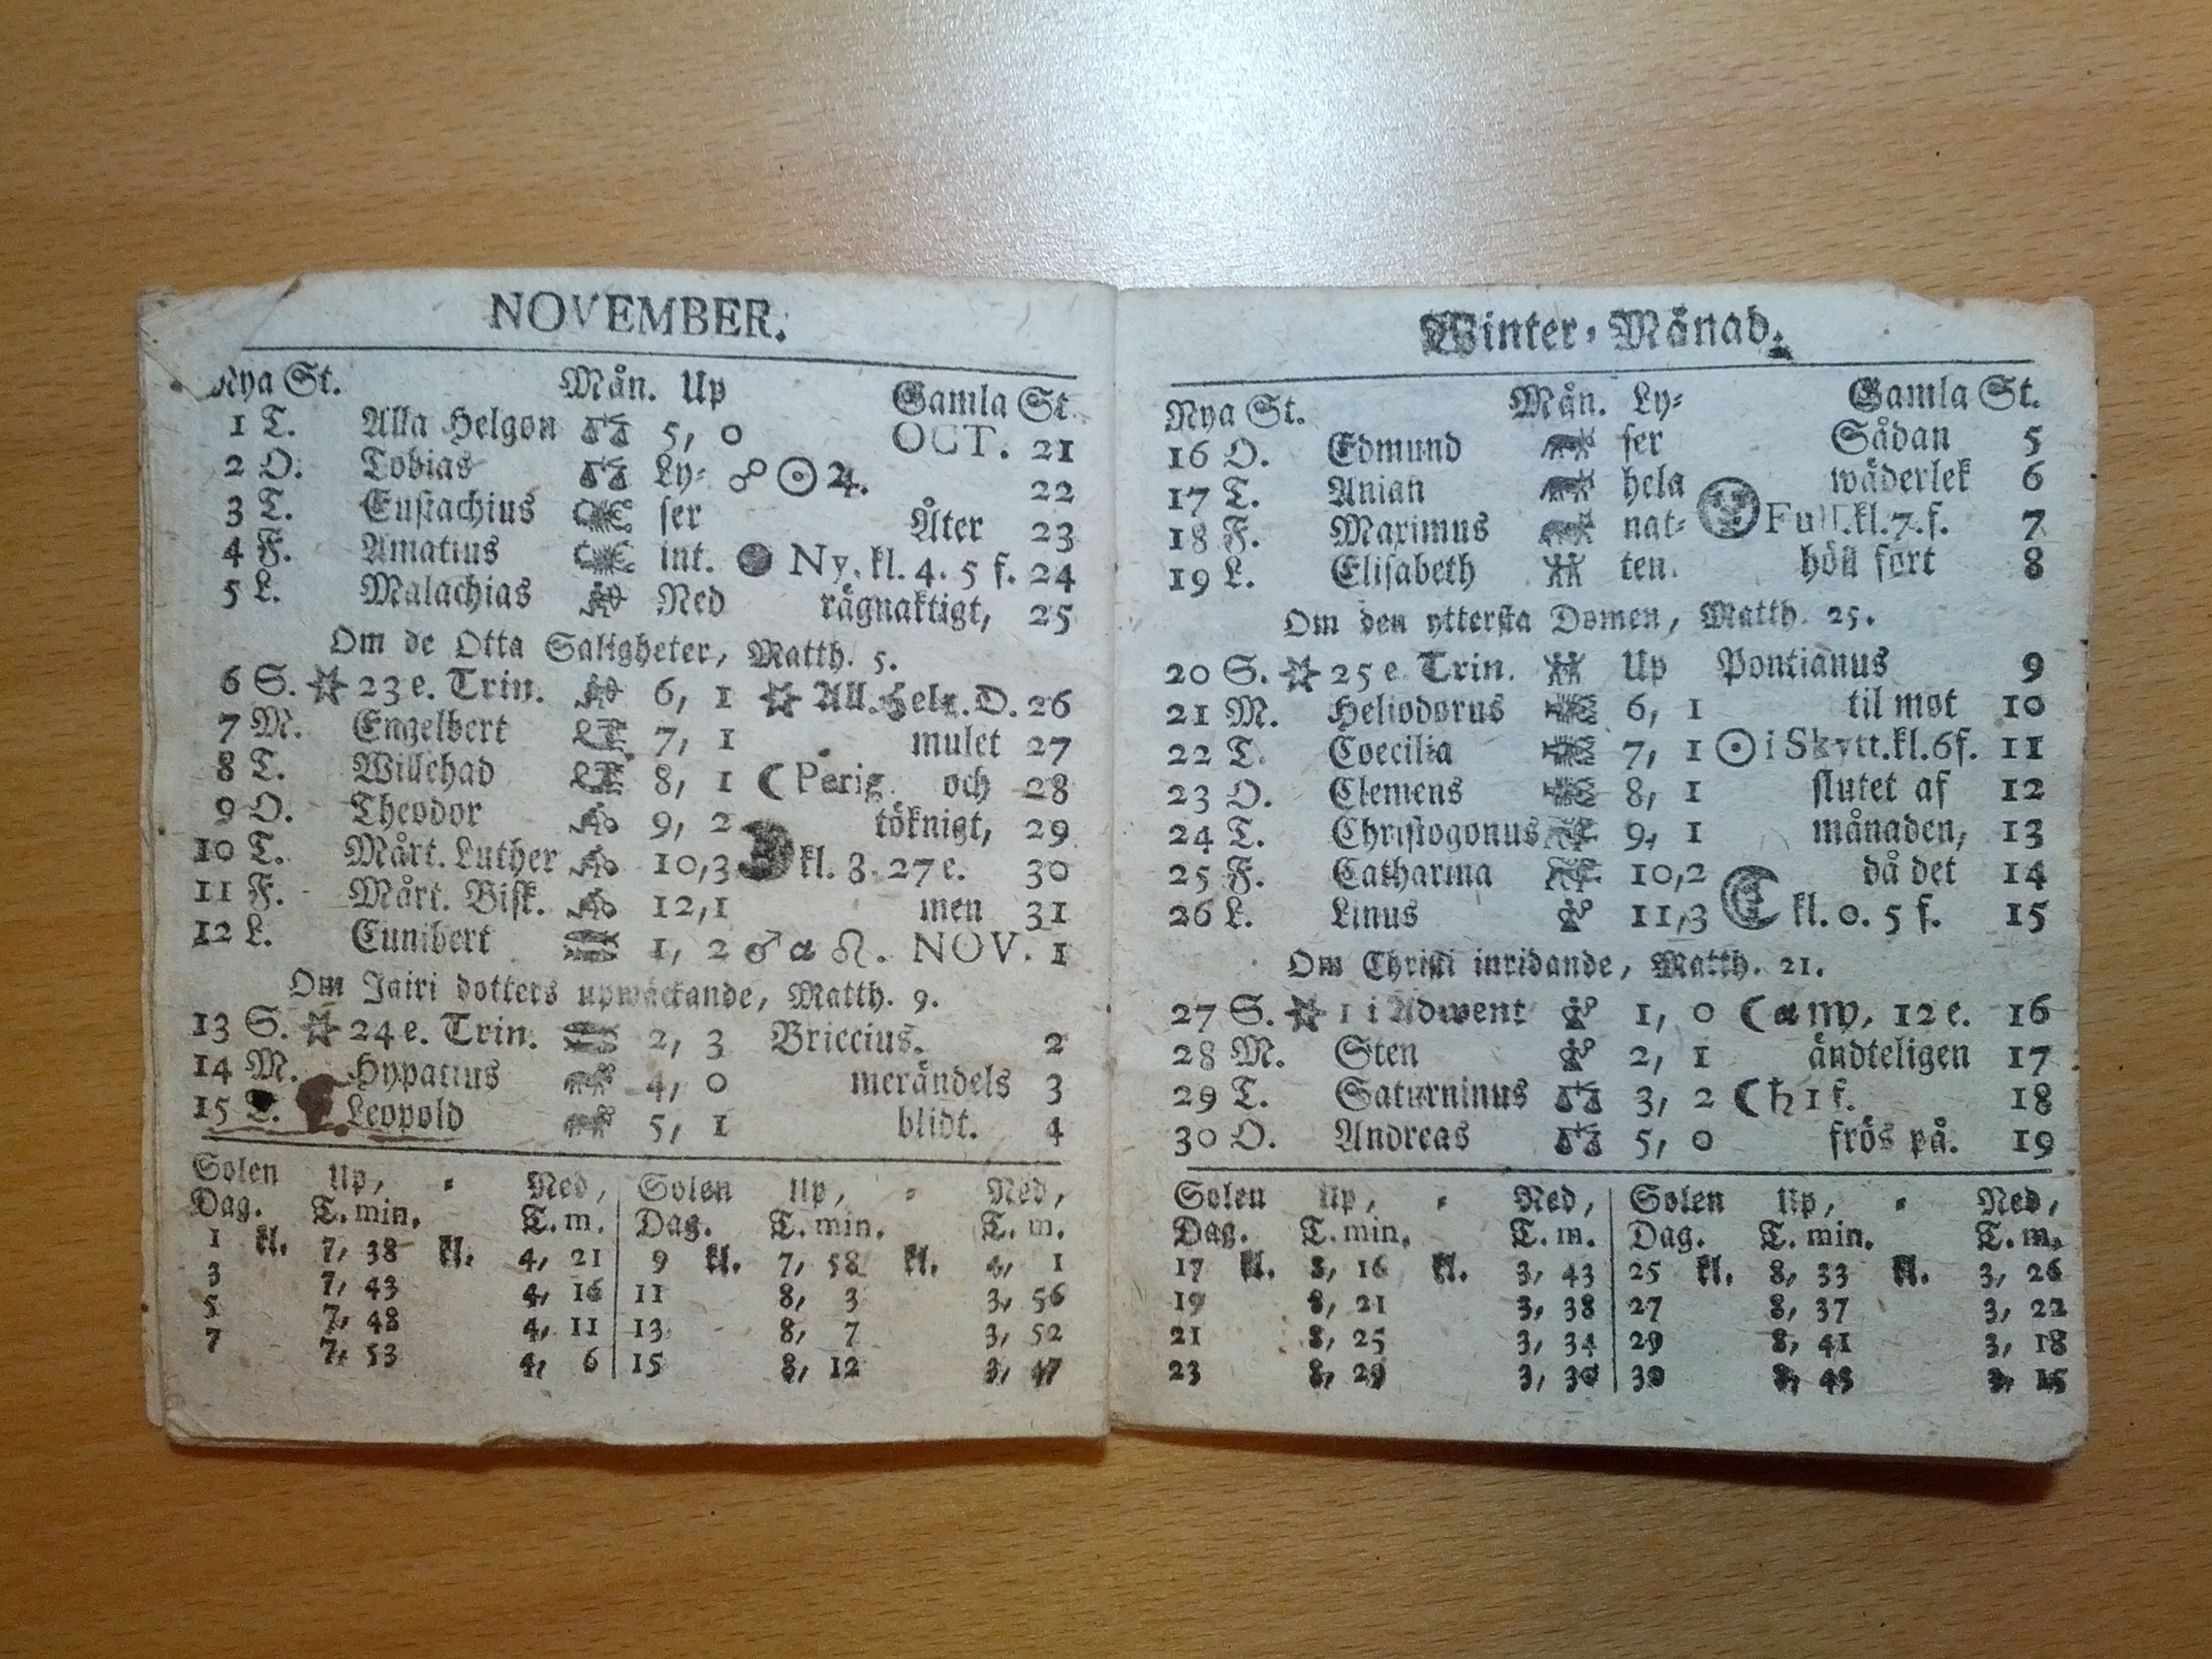 NOVEMBER.
Nya St. Mån. Up Gamla St.
1 T. Alla Helgon 5, 0 OCT. 21
2 O. Tobias Ly- ☍ ☉ ♃. 22
3 T. Eustachius ser Åter 23
4 F. Amatius int. Ny. kl. 4. 5 f. 24
5 L. Malachias Ned rägnaktigt, 25
Om de Otta Saligheter, Matth. 5.
6 S. 23 e. Trin. 6, 1 All. Helg. D. 26
7 M. Engelbert 7, 1 mulet 27
8 T. Willehad 8, 1 ☾ Perig. och 28
9 O. Theodor 9, 2 töknigt, 29
10 T. Mårt. Luther 10,3 kl. 3. 27 e. 30
11 F. Mårt. Bisk. 12,1 men 31
12 L. Cunibert 1, 2 ♂ α ♌. NOV. 1
Om Jairi dotters upwäckande, Matth. 9.
13 S. 24 e. Trin. 2, 3 Briccius. 2
14 M. Hypatius 4, 0 merändels 3
15 T. Leopold 5, 1 blidt. 4
Solen Up, Ned, Solen Up, Ned,
Dag. T. min. T. m. Dag. T. min. T. m.
1 kl. 7, 38 kl. 4, 21 9 kl. 7, 58 kl. 4, 1
3 7, 43 4, 16 11 8, 3 3, 56
5 7, 48 4, 11 13 8, 7 3, 52
7 7, 53 4, 6 15 8, 12 3, 47
Winter-Månad.
Nya St. Mån. Ly- Gamla St.
16 O. Edmund ser Sådan 5
17 T. Anian hela wäderlek 6
18 F. Maximus nat- Full. kl. 7. f. 7
19 L. Elisabeth ten. höll fort 8
Om den yttersta Domen, Matth. 25.
20 S. 25 e Trin. Up Pontianus 9
21 M. Heliodorus 6, 1 til mot 10
22 T. Coecilia 7, 1 ☉ i Skytt. kl. 6 f. 11
23 O. Clemens 8, 1 slutet af 12
24 T. Christogonus 9, 1 månaden, 13
25 F. Catharina 10,2 då det 14
26 L. Linus 11,3 kl. 0. 5 f. 15
Om Christi inridande, Matth. 21.
27 S. 1 i Adwent 1, 0 ☾ α ♍, 12 e. 16
28 M. Sten 2, 1 ändteligen 17
29 T. Saturninus 3, 2 ☾ ♄ 1 f. 18
30 O. Andreas 5, 0 frös på. 19
Solen Up, Ned, Solen Up, Ned,
Dag. T. min. T. m. Dag. T. min. T. m.
17 kl. 8, 16 kl. 3, 43 25 kl. 8, 33 kl. 3, 26
19 8, 21 3, 38 27 8, 37 3, 22
21 8, 25 3, 34 29 8, 41 3, 18
23 8, 29 3, 30 30 8, 43 3, 15